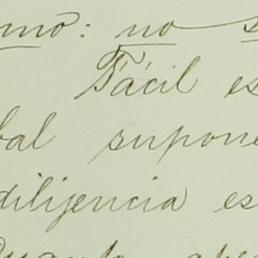 mo: no
Fácil es
bal supone
diligencia es